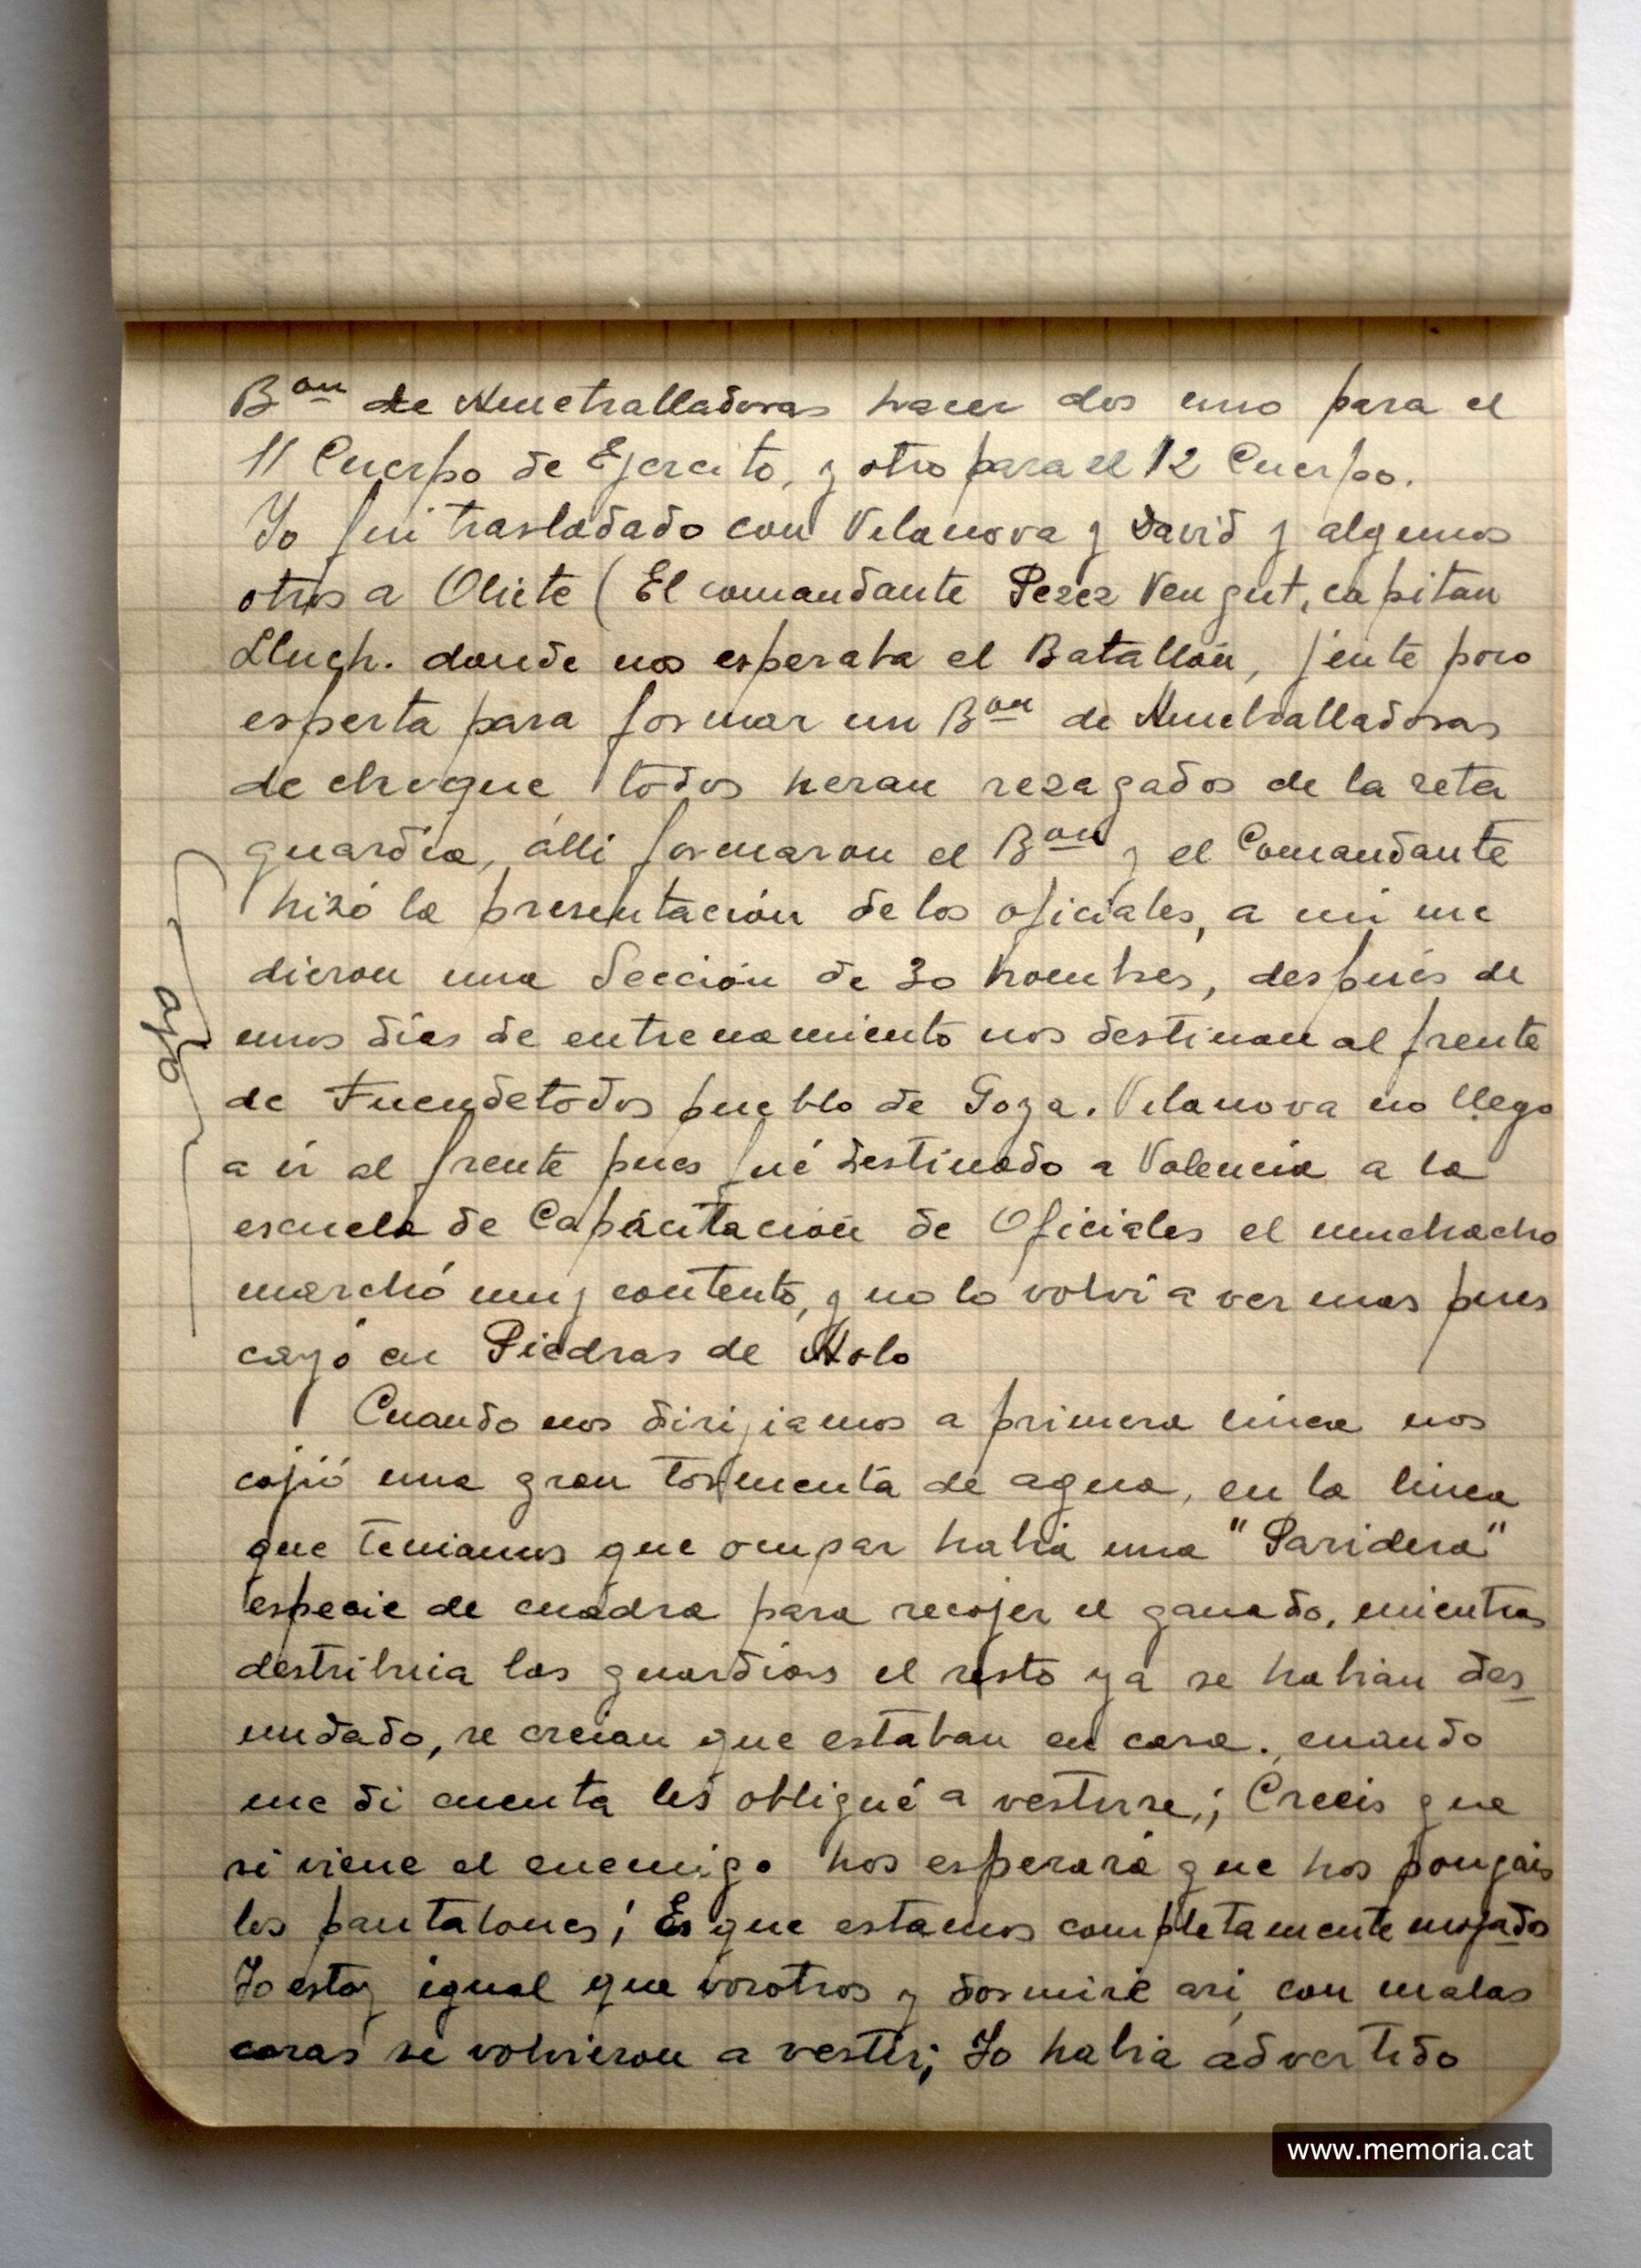 Bon de Ametralladoras hacer dos uno para el
11 Cuerpo de Ejercito, y otro para el 12 Cuerpo.
Yo fui trasladado con Vilanova y David y algunos
otros a Oliete (El comandante Perez Vengut, capitan
Lluch. donde nos esperaba el Batallón, jente poco
esperta para formar un Bon de Ametralladoras
de choque todos heran rezagados de la reta
guardia, álli formaron el Bon y el Comandante
hizó la presentación de los oficiales, a mi me
dieron una Sección de 30 hombres, después de
unos dias de entrenamiento nos destinan al frente
de Fuendetodos pueblo de Goya. Vilanova no llego
a ir al frente pues fué destinado a Valencia a la
escuela de Capácitación de Oficiales el muchacho
marchó muy contento, y no lo volvi a ver mas pues
cayó en Piedras de Aolo
Cuando nos dirijiamos a primera linea nos
cojió una gran tormenta de agua, en la linea
que teniamos que ocupar habia una "Paridera"
especie de cuadra para recojer el ganado, mientras
destribuia las guardias el resto ya se habian des
nudado, se creian que estaban en casa. cuando
me di cuenta les obligué a vestirse,¡ Creeis que
si viene el enemigo hos esperará que hos pongais
los pantalones¡ Es que estamos completamente mojados
Yo estoy igual que vosotros y dormiré asi, con malas
caras se volvieron a vestir; Yo habia advertido
www.memoria.cat